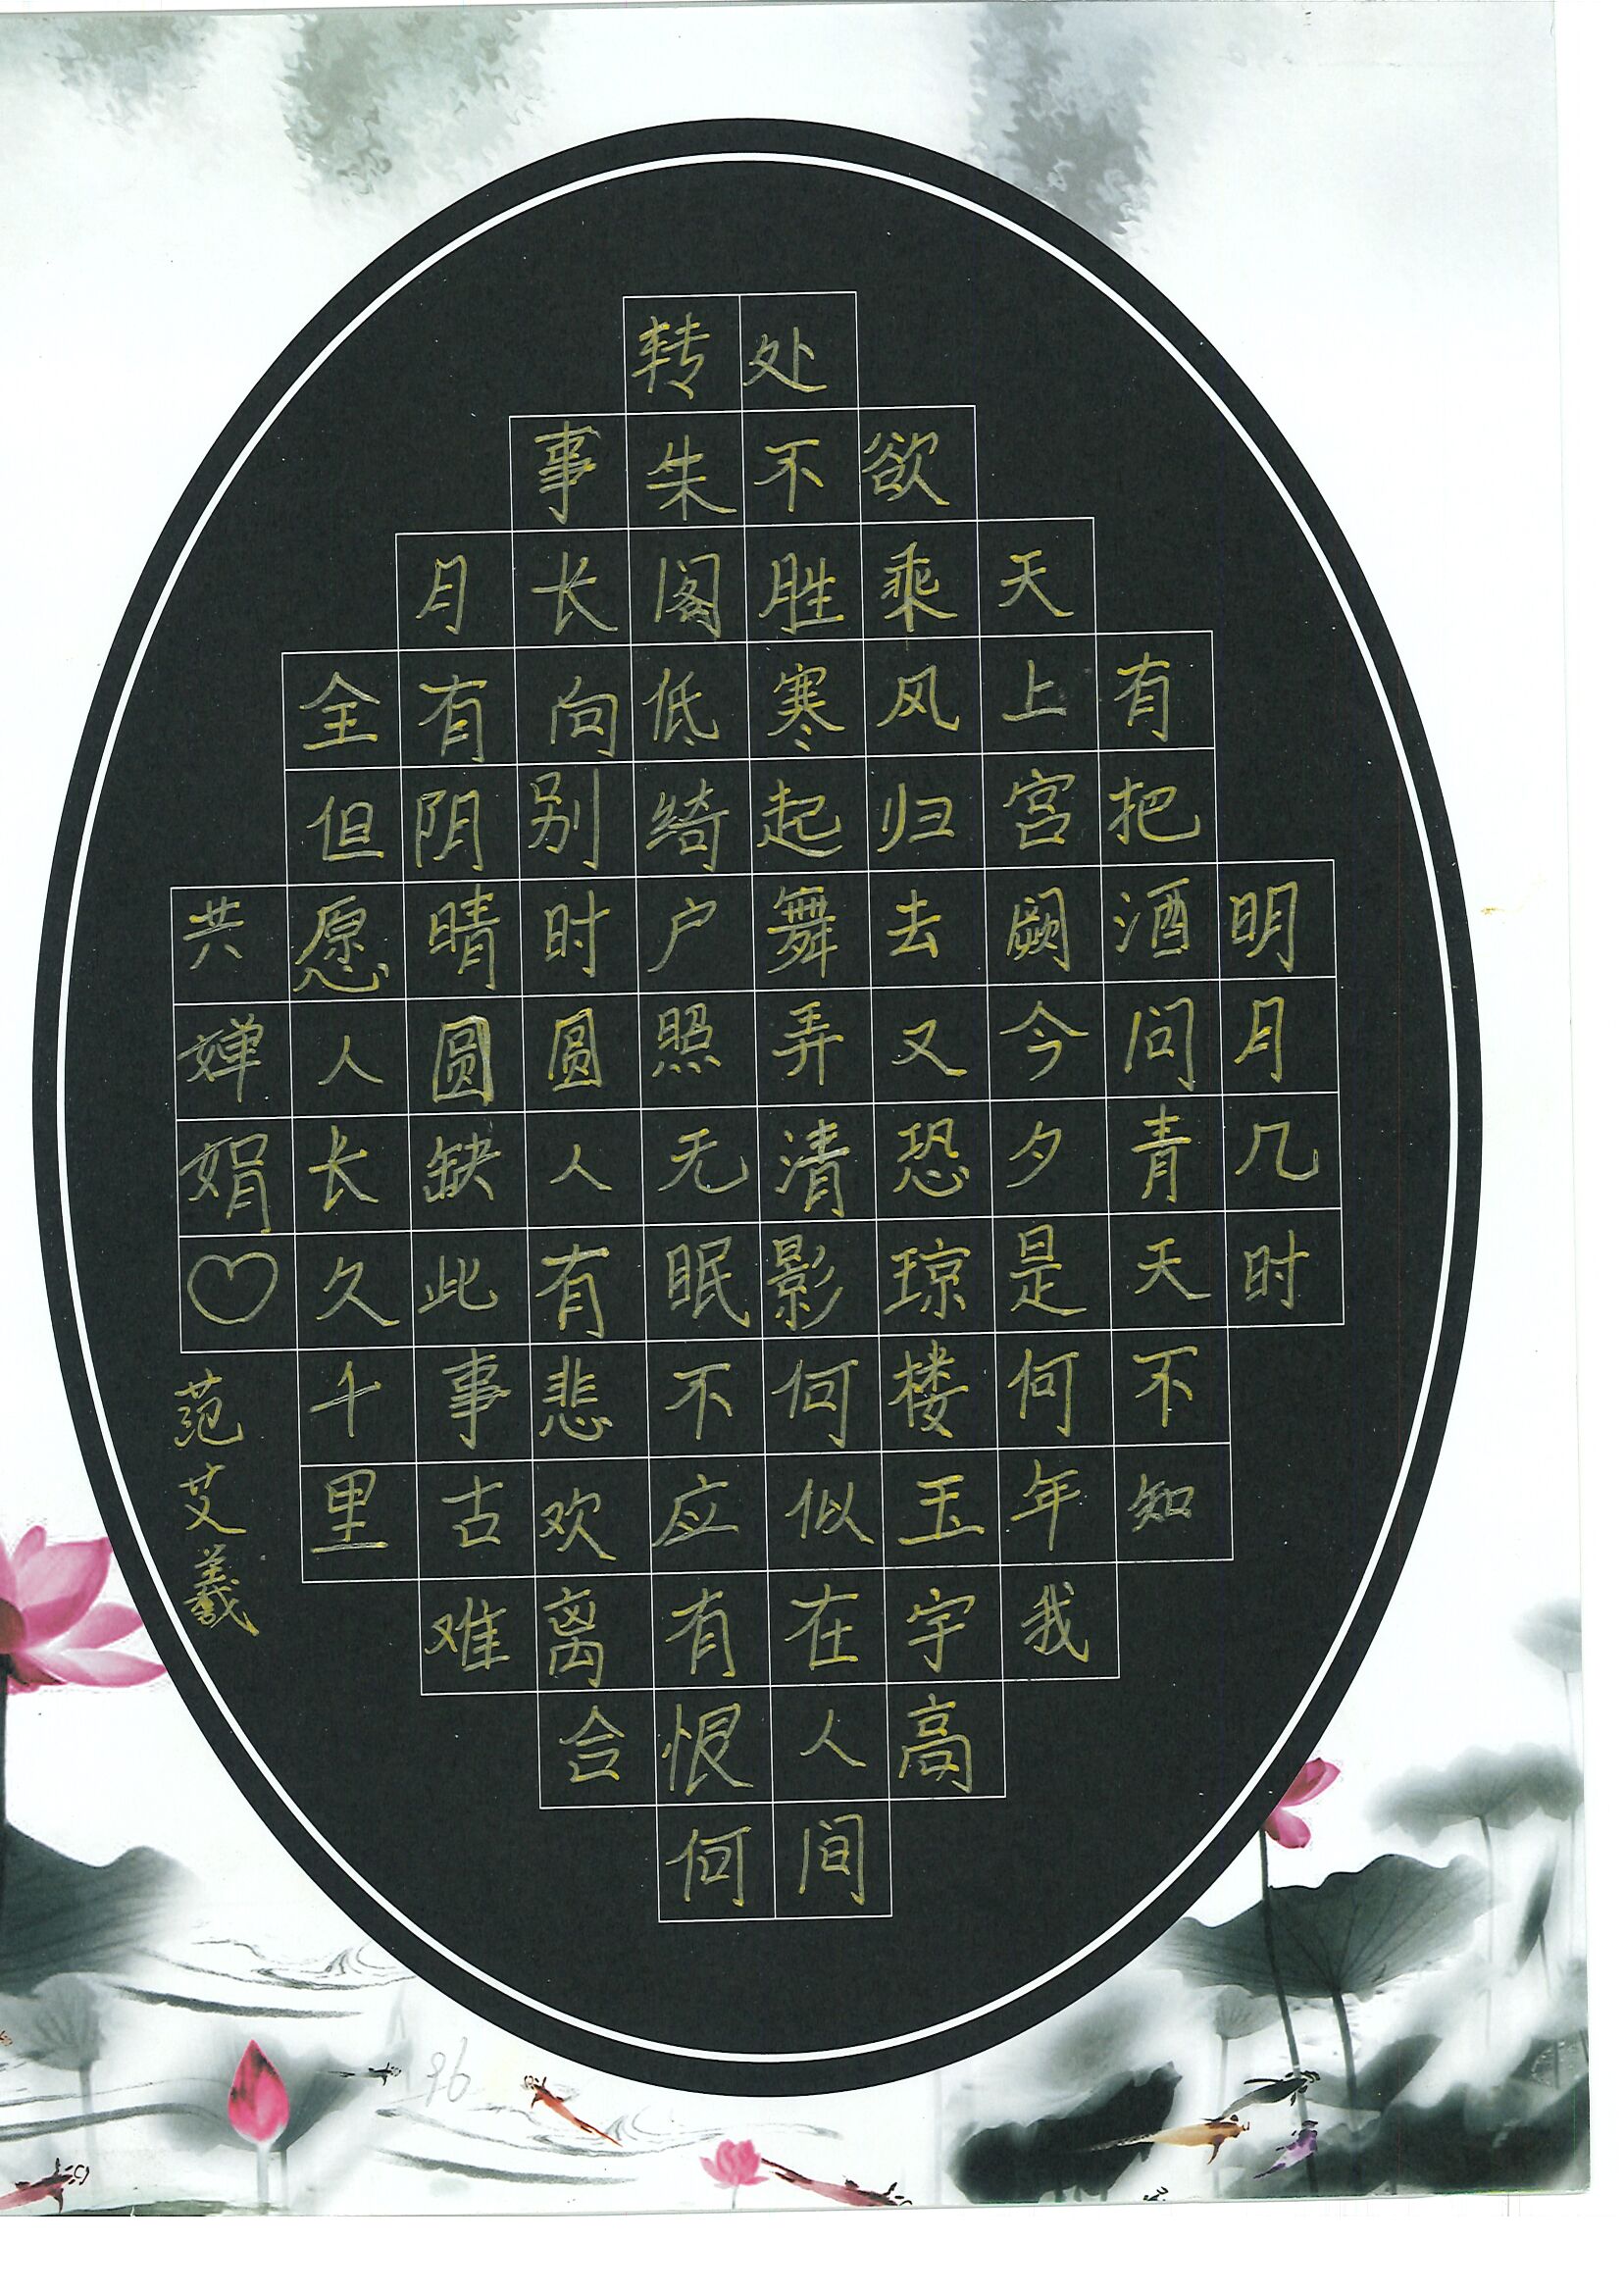 明月几时
有把酒问青天不知
天上宫阙今夕是何年我
欲乘风归去又恐琼楼玉宇高
处不胜寒起舞弄清影何似在人间
转朱阁低绮户照无眠不应有恨何
事长向别时圆人有悲欢离合
月有阴晴圆缺此事古难
全但愿人长久千里
共婵娟♡
范艾羲
96